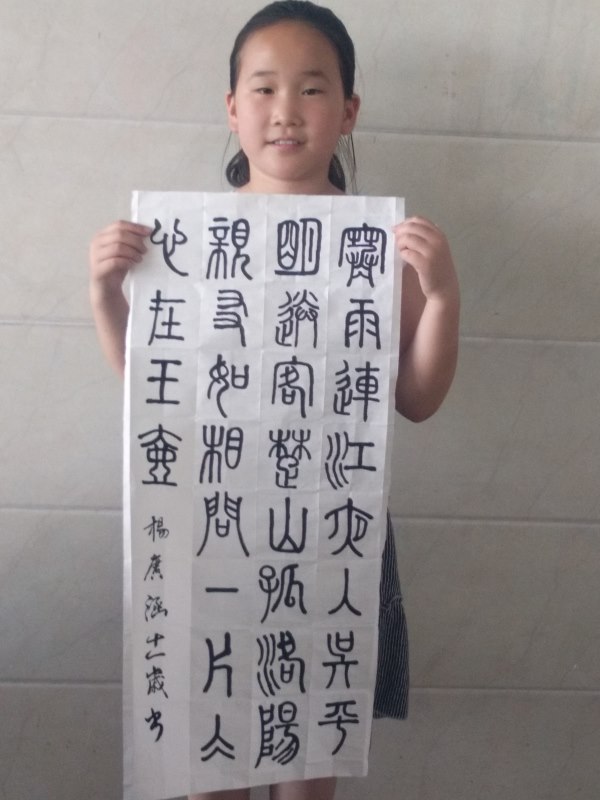 寒雨連江夜入吳平
明送客楚山孤洛陽
親友如相問一片冰
心在玉壺
楊廣涵十一歲书